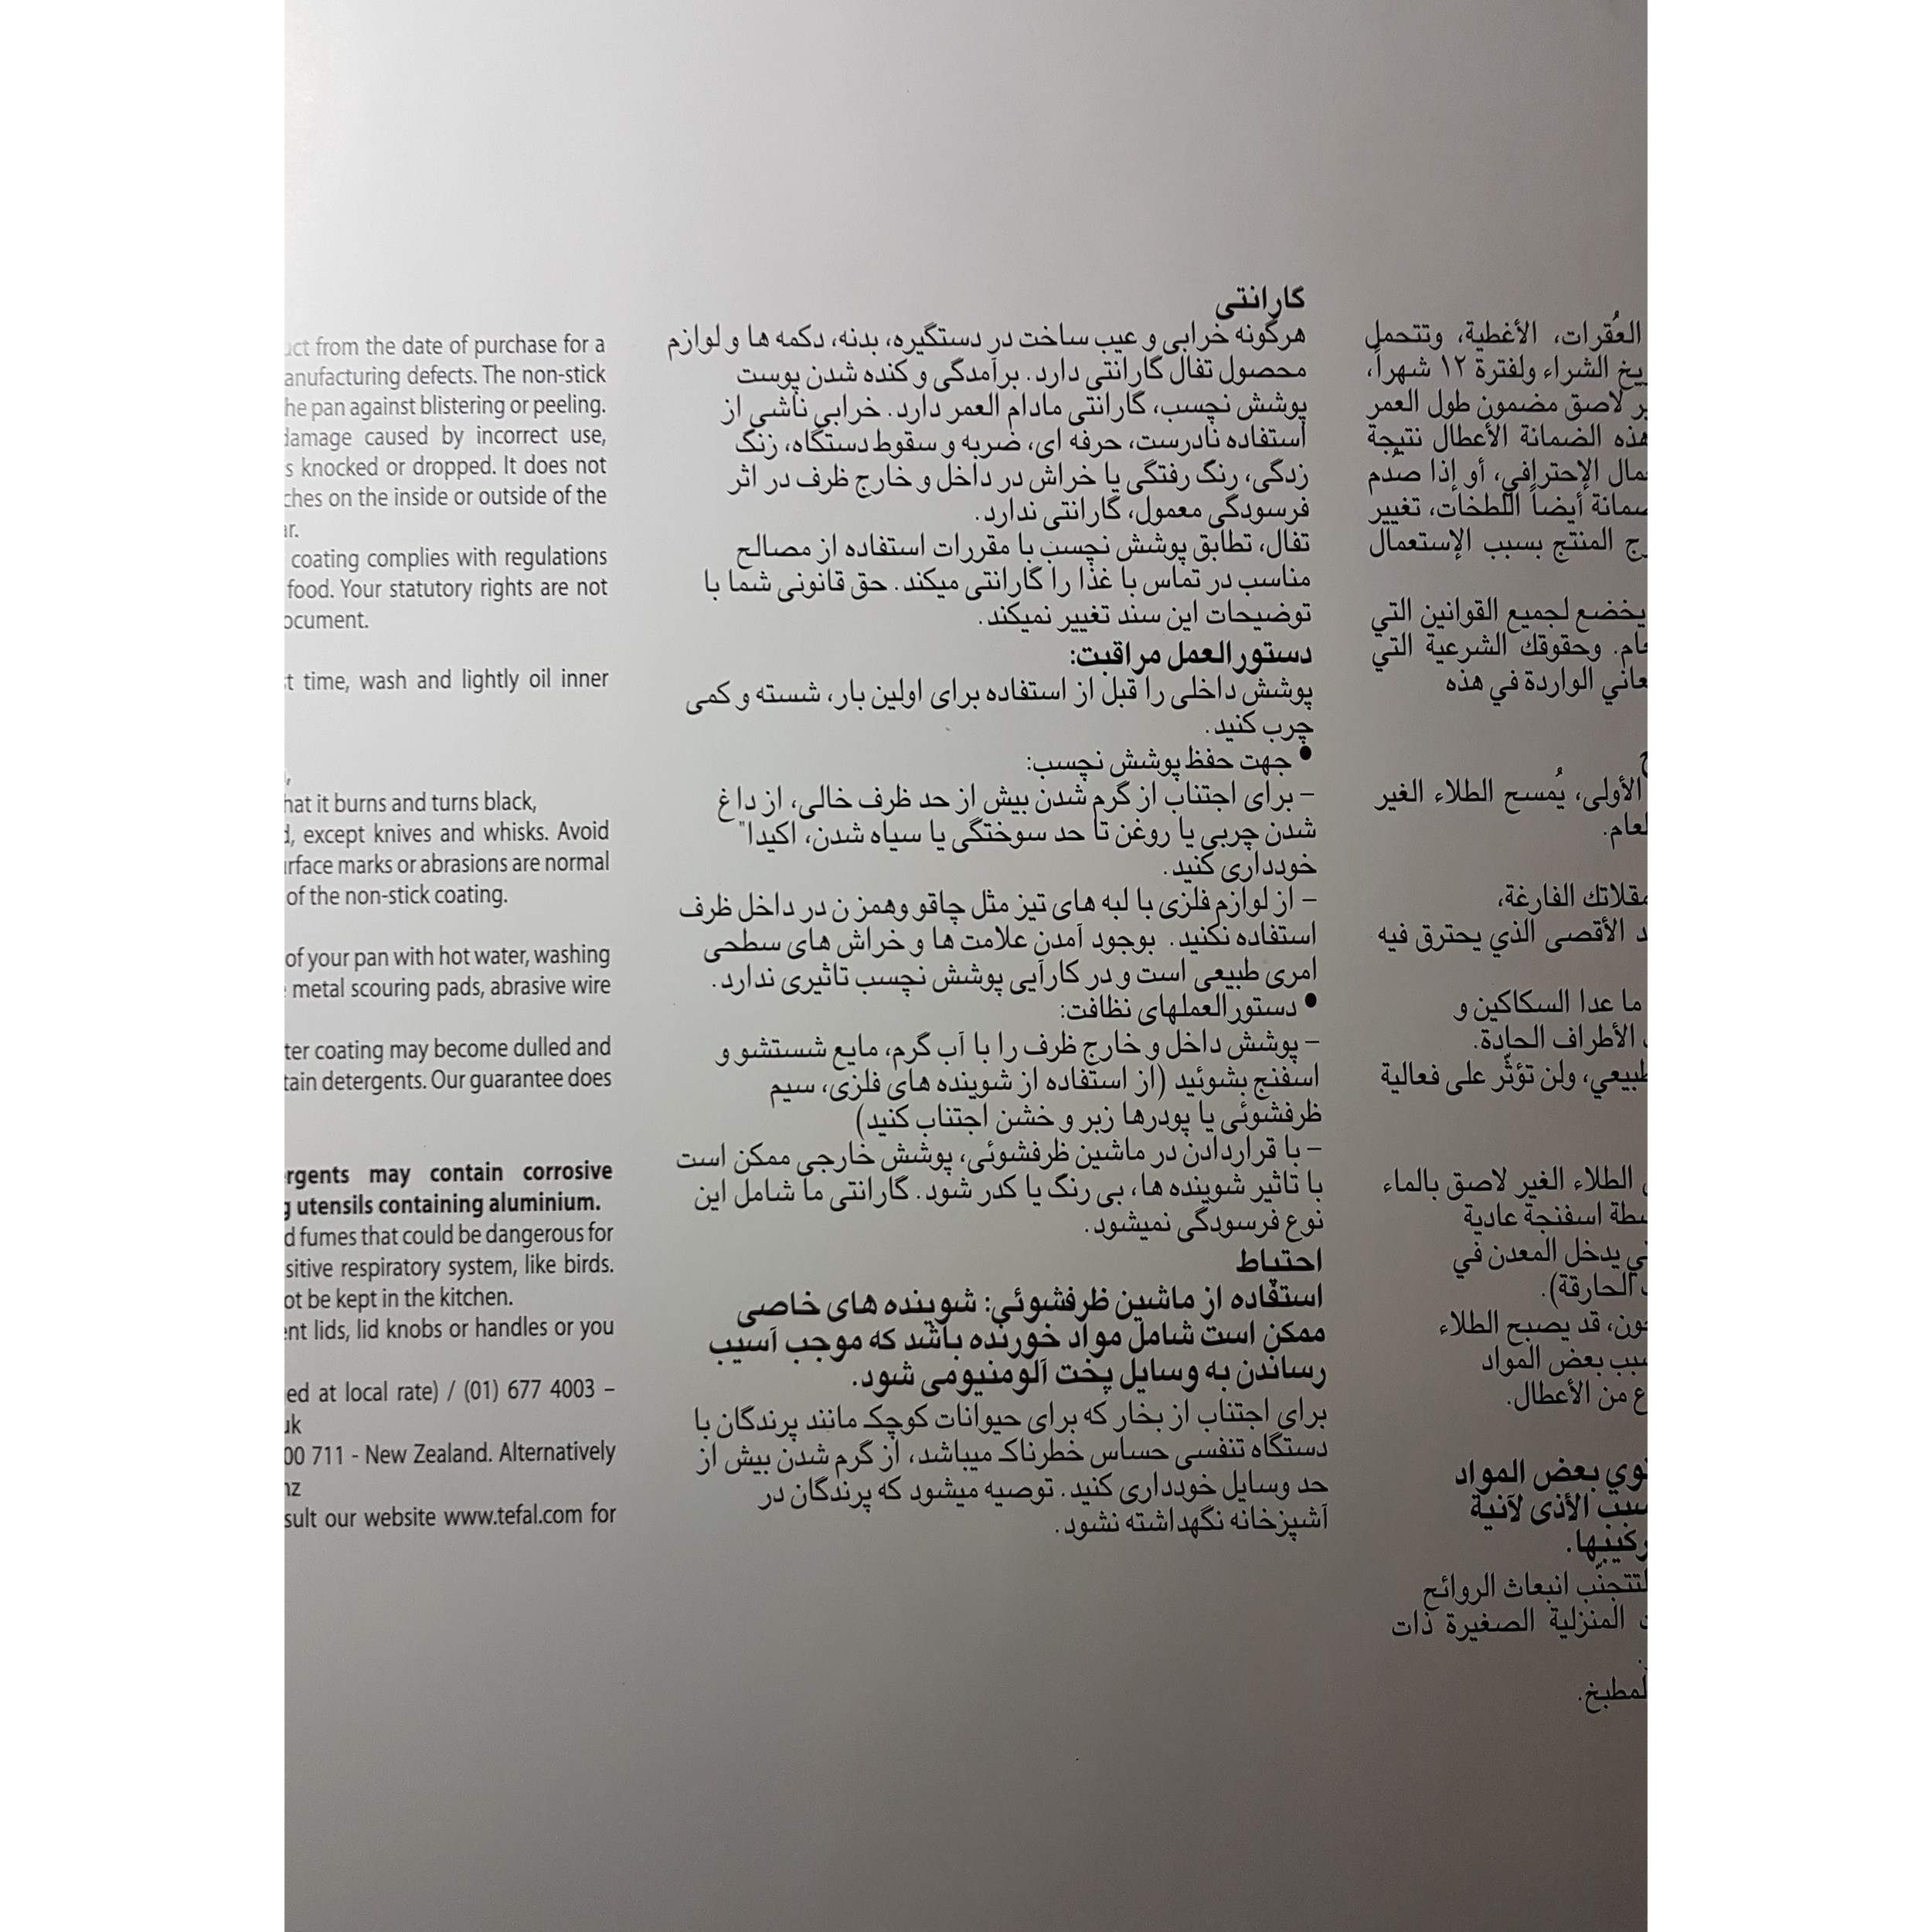 from the date of purchase for a
manufacturing defects. The non-stick
the pan against blistering or peeling.
damage caused by incorrect use,
knocked or dropped. It does not
on the inside or outside of the
coating complies with regulations
food. Your statutory rights are not
time, wash and lightly oil inner
it burns and turns black,
except knives and whisks. Avoid
marks or abrasions are normal
of the non-stick coating.
of your pan with hot water, washing
metal scouring pads, abrasive wire
coating may become dulled and
detergents. Our guarantee does
may contain corrosive
utensils containing aluminium.
fumes that could be dangerous for
respiratory system, like birds.
be kept in the kitchen.
lids, lid knobs or handles or you
at local rate) / (01) 677 4003 –
711 - New Zealand. Alternatively
our website www.tefal.com for
گارانتی
هرگونه خرابی و عیب ساخت در دستگیره، بدنه، دکمه ها و لوازم
محصول تفال گارانتی دارد. برآمدگی و کنده شدن پوست
پوشش نچسب، گارانتی مادام العمر دارد. خرابی ناشی از
استفاده نادرست، حرفه ای، ضربه و سقوط دستگاه، زنگ
زدگی، رنگ رفتگی یا خراش در داخل و خارج ظرف در اثر
فرسودگی معمول، گارانتی ندارد.
تفال، تطابق پوشش نچسب با مقررات استفاده از مصالح
مناسب در تماس با غذا را گارانتی میکند. حق قانونی شما با
توضیحات این سند تغییر نمیکند.
دستورالعمل مراقبت:
پوشش داخلی را قبل از استفاده برای اولین بار، شسته و کمی
چرب کنید.
• جهت حفظ پوشش نچسب:
– برای اجتناب از گرم شدن بیش از حد ظرف خالی، از داغ
شدن چربی یا روغن تا حد سوختگی یا سیاه شدن، اکیدا"
خودداری کنید.
– از لوازم فلزی با لبه های تیز مثل چاقو وهمز ن در داخل ظرف
استفاده نکنید. بوجود آمدن علامت ها و خراش های سطحی
امری طبیعی است و در کارآیی پوشش نچسب تاثیری ندارد.
• دستورالعملهای نظافت:
– پوشش داخل و خارج ظرف را با آب گرم، مایع شستشو و
اسفنج بشوئید (از استفاده از شوینده های فلزی، سیم
ظرفشوئی یا پودرها زبر و خشن اجتناب کنید)
– با قراردادن در ماشین ظرفشوئی، پوشش خارجی ممکن است
با تاثیر شوینده ها، بی رنگ یا کدر شود. گارانتی ما شامل این
نوع فرسودگی نمیشود.
احتیاط
استفاده از ماشین ظرفشوئی: شوینده های خاصی
ممکن است شامل مواد خورنده باشد که موجب آسیب
رساندن به وسایل پخت آلومنیومی شود.
برای اجتناب از بخار که برای حیوانات کوچک مانند پرندگان با
دستگاه تنفسی حساس خطرناک میباشد، از گرم شدن بیش از
حد وسایل خودداری کنید. توصیه میشود که پرندگان در
آشپزخانه نگهداشته نشود.
العُقرات، الأغطية، وتتحمل
الشراء ولفترة ١٢ شهراً،
لاصق مضمون طول العمر
هذه الضمانة الأعطال نتيجة
الإحترافي، أو إذا صُدم
أيضاً اللطخات، تغيير
المنتج بسبب الإستعمال
يخضع لجميع القوانين التي
وحقوقك الشرعية التي
الواردة في هذه
الأولى، يُمسح الطلاء الغير
الفارغة،
الأقصى الذي يحترق فيه
ما عدا السكاكين و
الأطراف الحادة.
ولن تؤثّر على فعالية
الطلاء الغير لاصق بالماء
اسفنجة عادية
يدخل المعدن في
الحارقة).
قد يصبح الطلاء
بعض المواد
من الأعطال.
بعض المواد
الأذى لآنية
انبعاث الروائح
المنزلية الصغيرة ذات